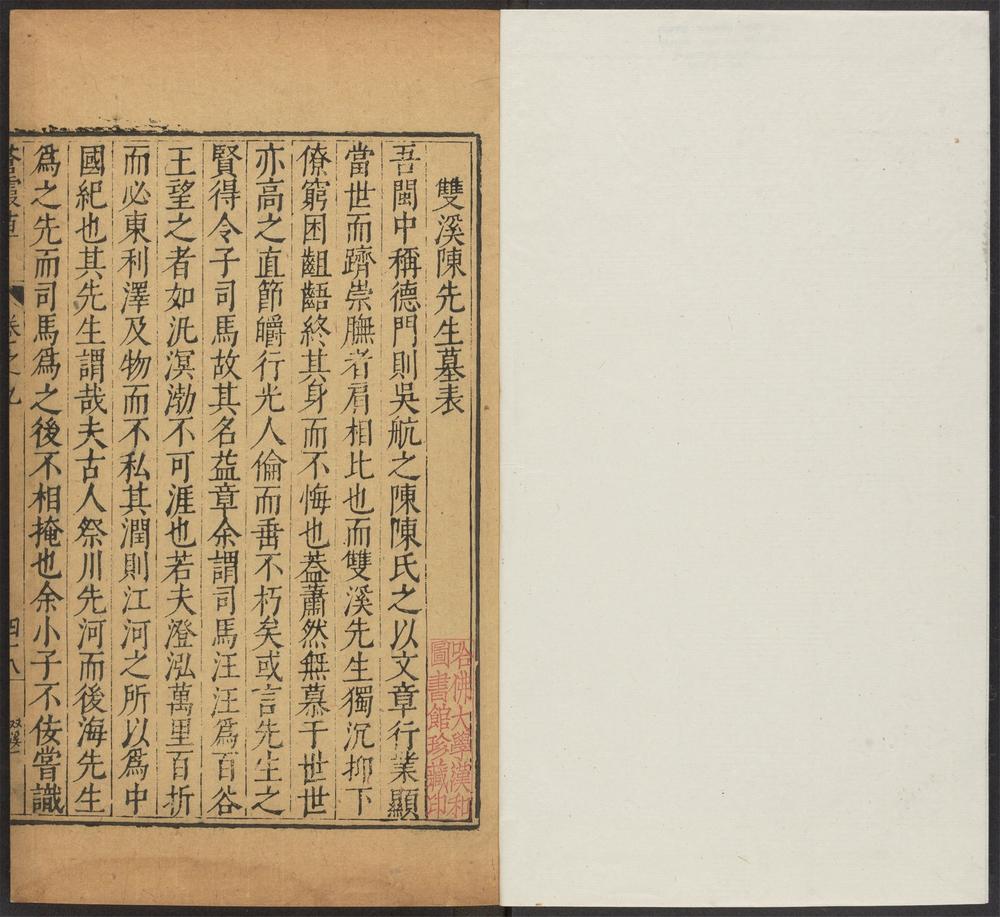 雙溪陳先生墓表
吾閩中稱德門則吳航之陳陳氏之以文章行業顯
當世而躋崇膴者肩相比也而雙溪先生獨沉抑下
僚窮困齟齬終其身而不悔也蓋蕭然無慕于世世
亦高之直節皭行光人倫而垂不朽矣或言先生之
賢得令子司馬故其名益章余謂司馬汪汪爲百谷
王望之者如汎溟渤不可涯也若夫澄泓萬里百折
而必東利澤及物而不私其潤則江河之所以爲中
國紀也其先生謂哉夫古人祭川先河而後海先生
爲之先而司馬爲之後不相掩也余小子不佞嘗識
卷之九
四十八
哈佛大學漢和
圖書館珍藏印